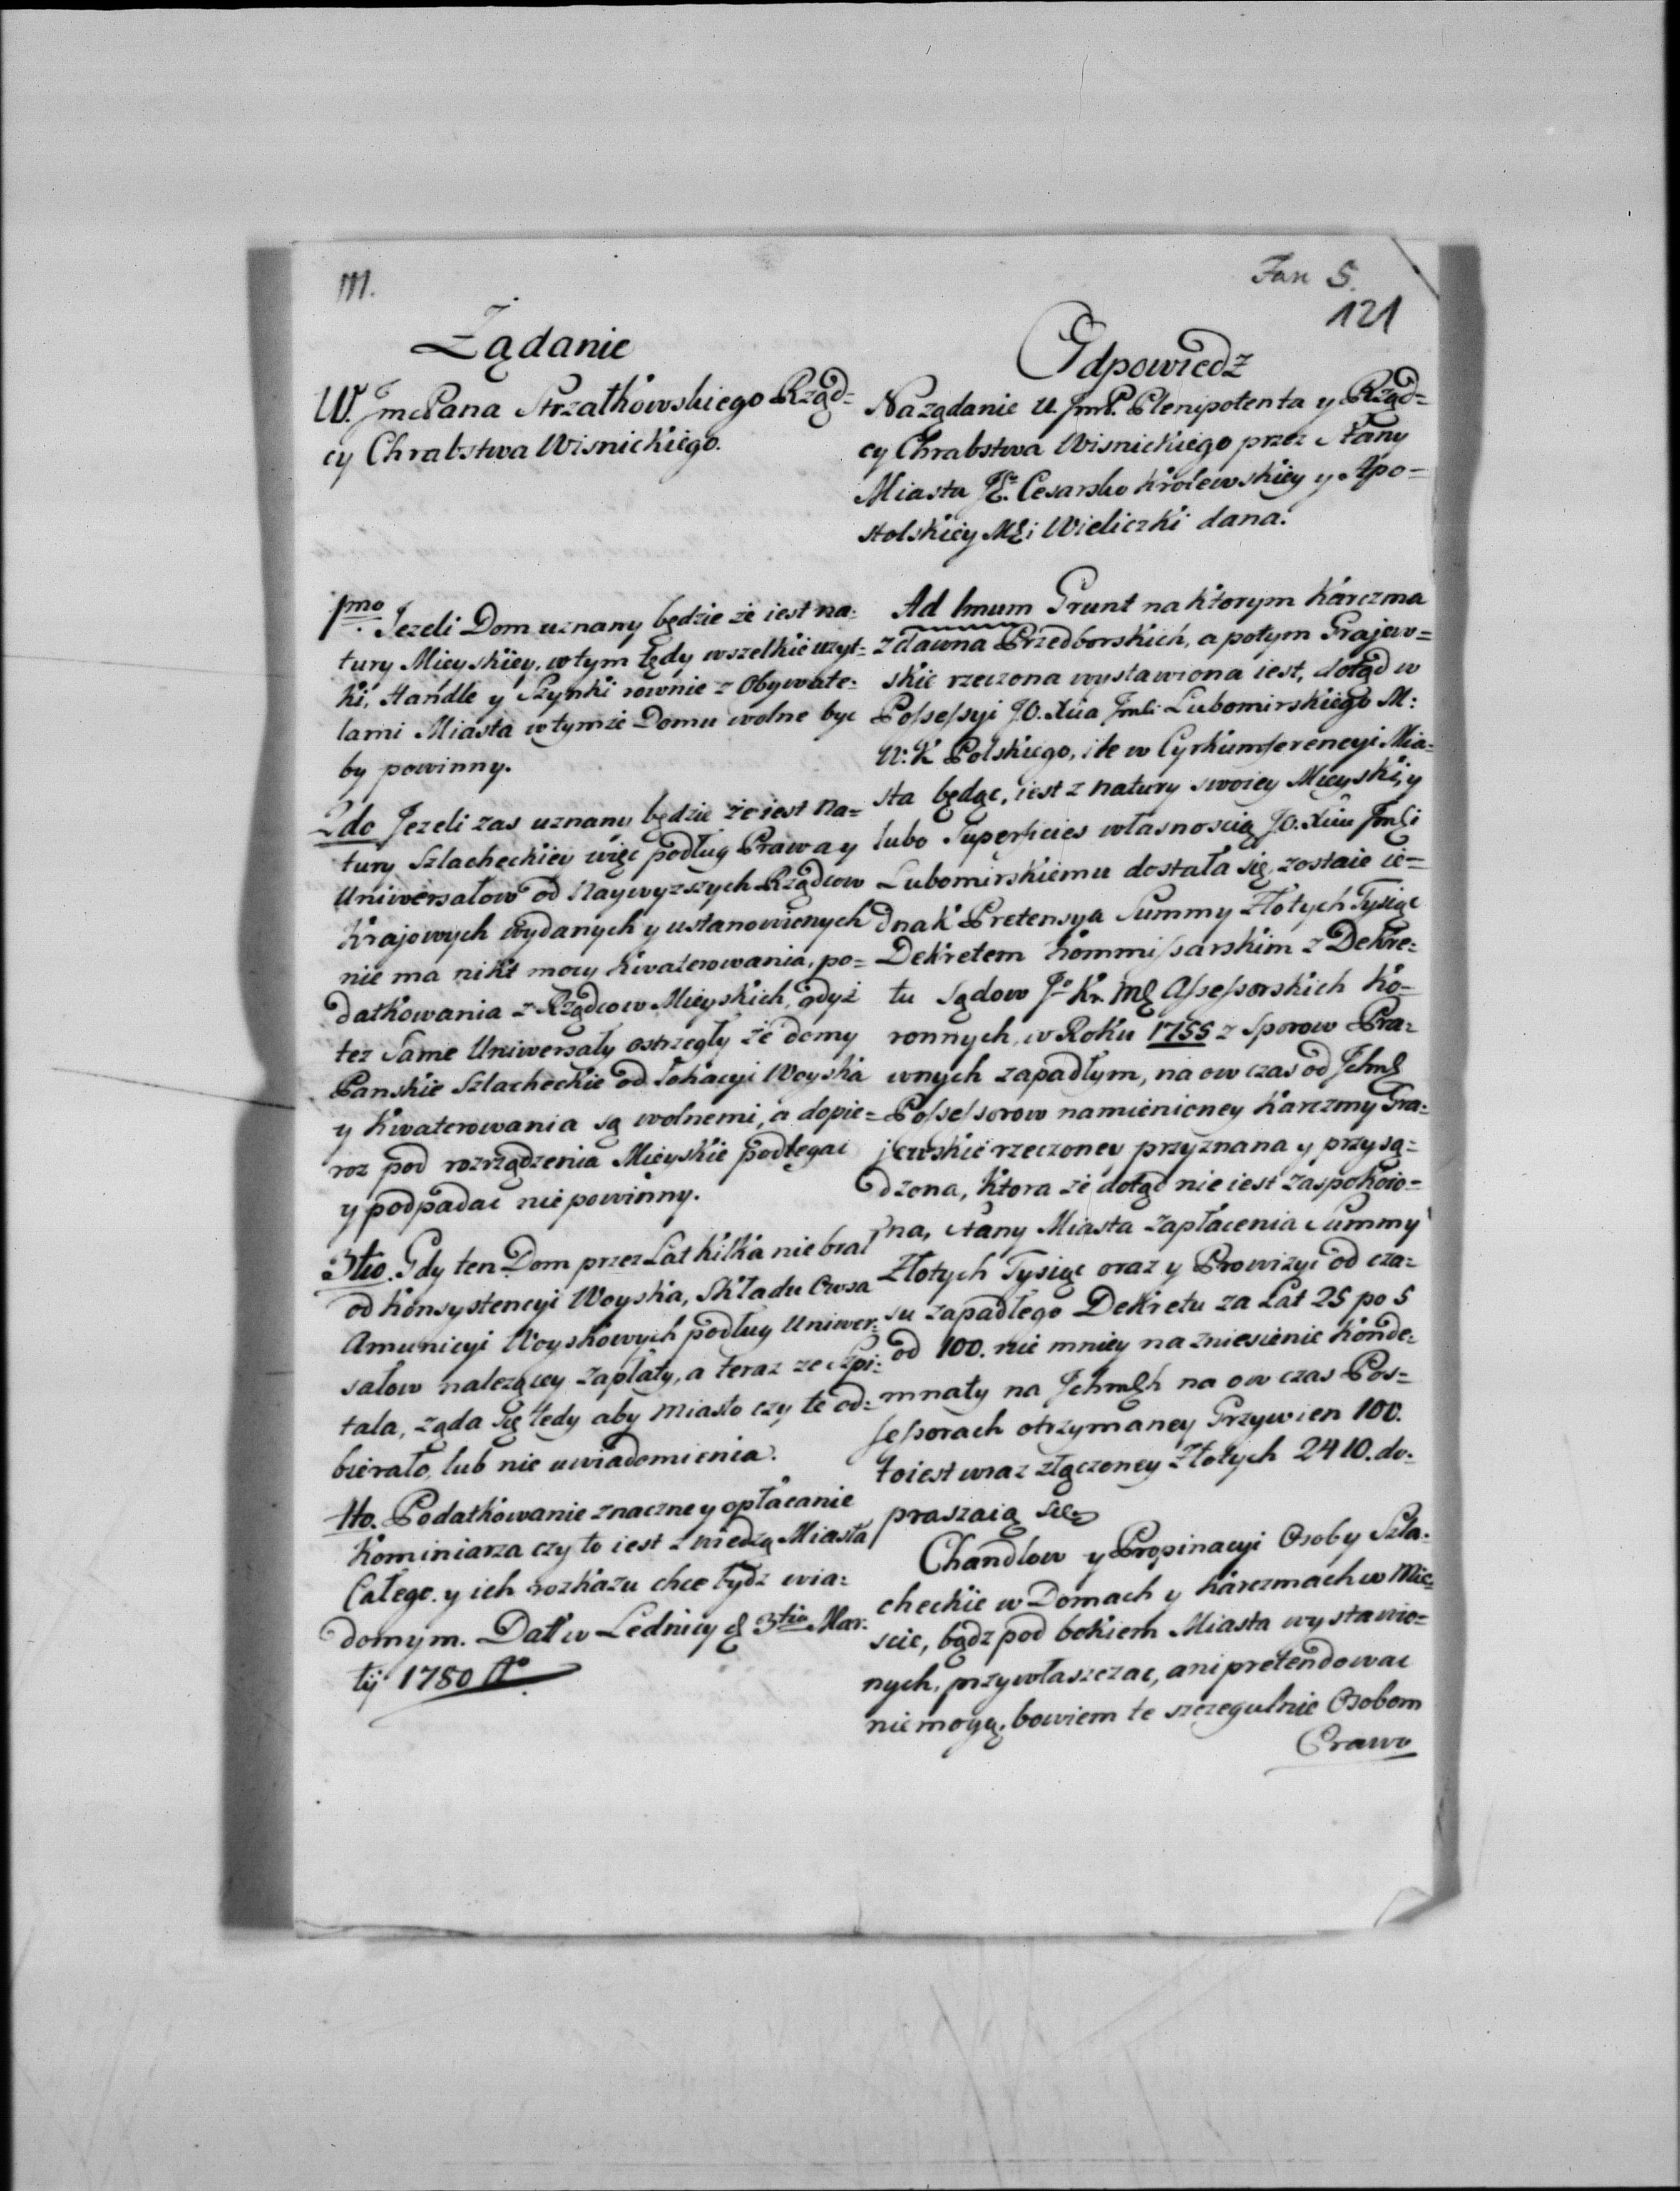 111.
Fan 5.
121
Żądanie
W. Jmc Pana Strzałkowskiego Rządz=
cy Chrabstwa Wisnickiego.
1mo. Jezeli Dom uznany będzie że iest na=
tury Mieyskiey, w tym tędy wszelkie uzyt=
ki, Handle y Szynki rownie z Obywate=
lami Miasta w tymże Domu wolne byc
by powinny.
2do Jezeli zas uznany będzie że iest na=
tury Szlacheckiey więc podług Prawa y
Uniwersałow od Naywyzszych Rządcow
Krajowych wydanych y ustanowienych
nie ma nikt mocy kwaterowania, po=
datkowania z Rządcow Mieyskich, gdyż
tez Same Uniwersały ostrzegły że domy
Panskie Szlacheckie od lokacyi Woyska
y Kwaterowania są wolnemi, a dopie=
roz pod rozrządzenia Mieyskie podlegac
y podpadac nie powinny.
3tio. Gdy ten Dom przez Lat kilka nie brał
od Konsystencyi Woyska, Składu Owsa
Amunicyi Woyskowych podług Uniwer=
sałow nalezącey zapłaty, a teraz ze Szpi=
tala, ząda się tedy aby Miasto czy te od=
bierało, lub nie uwiadomienia.
4to. Podatkowanie znaczne y opłacanie
Kominiarza czy to iest z wiedzą Miasta
Całego. y ich rozkazu chce bydz wia=
domym. Dat w Lednicy d 3tia Mar=
tij 1780 Ao
Odpowiedz
Na ządanie U. JmP. Plenipotenta y Rząd=
cy Chrabstwa Wisnickiego przez Stany
Miasta Jo. Cesarsko Krolewskiey y Apo=
stolskiey Mci Wieliczki dana.
Ad 1mum Grunt na ktorym Karczma
z dawna Przedborskich, a potym Grajew=
skie rzeczona wystawiona iest, dotąd w
Possessyi J.O. Xcia Jmci Lubomirskiego M:
W: K Polskiego, ile w Cyrkumferencyi Mia=
sta będąc, iest z natury swoiey Mieyski, y
lubo Superficies własnoscią J.O. Xciu Jmci
Lubomirskiemu dostała się, zostaie ie=
dnak Pretensya Summy Złotych Tysiąc
Dekretem Kommissarskim z Dekre=
tu Sądow Jo Kr. Mci Assessorskich Ko=
ronnych, w Roku 1755 z Sporow Pra=
wnych zapadłym, na ow czas od Jchm
Possessorow namienioney Karczmy Gra=
jewskie rzeczoney przyznana y przysą=
dzona, ktora że dotąd nie iest zaspokoio=
na, Stany Miasta zapłacenia Summy
Złotych Tysiąc oraz y Prowizyi od cza=
su zapadłego Dekretu za Lat 25 po 5
od 100. nie mniey na zniesienie Konde=
mnaty na Jchmch na ow czas Pos=
sessorach otrzymaney Grzywien 100.
to iest wraz złączoney Złotych 2410. do=
praszaią się
Chandlow y Propinacyi Osoby Szla=
checkie w Domach y Karczmach w Mie=
scie, bądz pod bokiem Miasta wystawio=
nych, przywłaszczac, ani pretendowac
nie mogą, bowiem te szczegulnie Osobom
Prawo